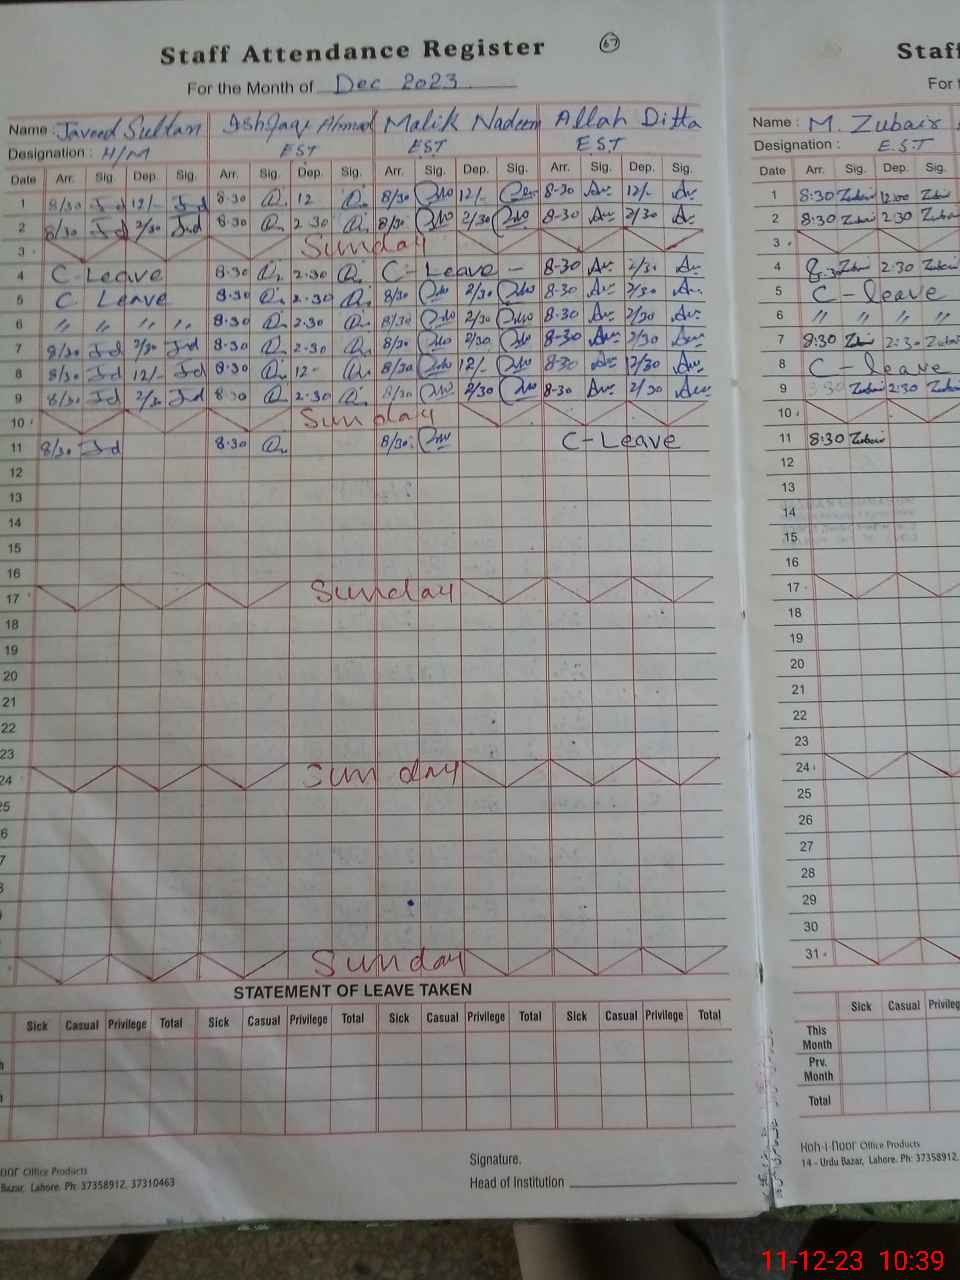 Staff Attendance Register
67
For the Month of Dec 2023
Name : Javeed Sultan Ishfaaq Ahmad Malik Nadeem Allah Ditta
Designation : H/M EST EST EST
Date Arr. Sig. Dep. Sig. Arr. Sig. Dep. Sig. Arr. Sig. Dep. Sig. Arr. Sig. Dep. Sig.
1 8/30 Jd 12/- Jd 8.30 12 8/30 12/- 8-30 12/-
2 8/30 Jd 2/30 Jd 8.30 2.30 8/30 2/30 8-30 2/30
3 Sunday
4 C-Leave 8.30 2.30 C-Leave - 8-30 2/30
5 C. Leave 8.30 2.30 8/30 2/30 8-30 2/30
6 〃 〃 〃 〃 8.30 2.30 8/30 2/30 8-30 2/30
7 8/30 Jd 2/30 Jd 8.30 2.30 8/30 2/30 8-30 2/30
8 8/30 Jd 12/- Jd 8.30 12- 8/30 12/- 8-30 12/30
9 8/30 Jd 2/30 Jd 8.30 2.30 8/30 2/30 8-30 2/30
10 Sunday
11 8/30 Jd 8.30 8/30 C-Leave
12
13
14
15
16
17 Sunday
18
19
20
21
22
23
24 Sunday
5
6
7
Sunday
STATEMENT OF LEAVE TAKEN
Sick Casual Privilege Total Sick Casual Privilege Total Sick Casual Privilege Total Sick Casual Privilege Total
Office Products
Bazar, Lahore. Ph: 37358912, 37310463
Signature.
Head of Institution
Staff
For t
Name : M. Zubair
Designation : E.S.T
Date Arr. Sig. Dep. Sig.
1 8:30 Zubair 12:00 Zubair
2 8:30 Zubair 2:30 Zubair
3
4 8:30 Zubair 2:30 Zubair
5 C-leave
6 〃 〃 〃 〃
7 8:30 Zubair 2:30 Zubair
8 C-leave
9 8:30 Zubair 2:30 Zubair
10
11 8:30 Zubair
12
13
14
15
16
17
18
19
20
21
22
23
24
25
26
27
28
29
30
31
Sick Casual Privileg
This Month
Prv. Month
Total
Koh-i-noor Office Products
14 - Urdu Bazar, Lahore. Ph: 37358912,
11-12-23 10:39